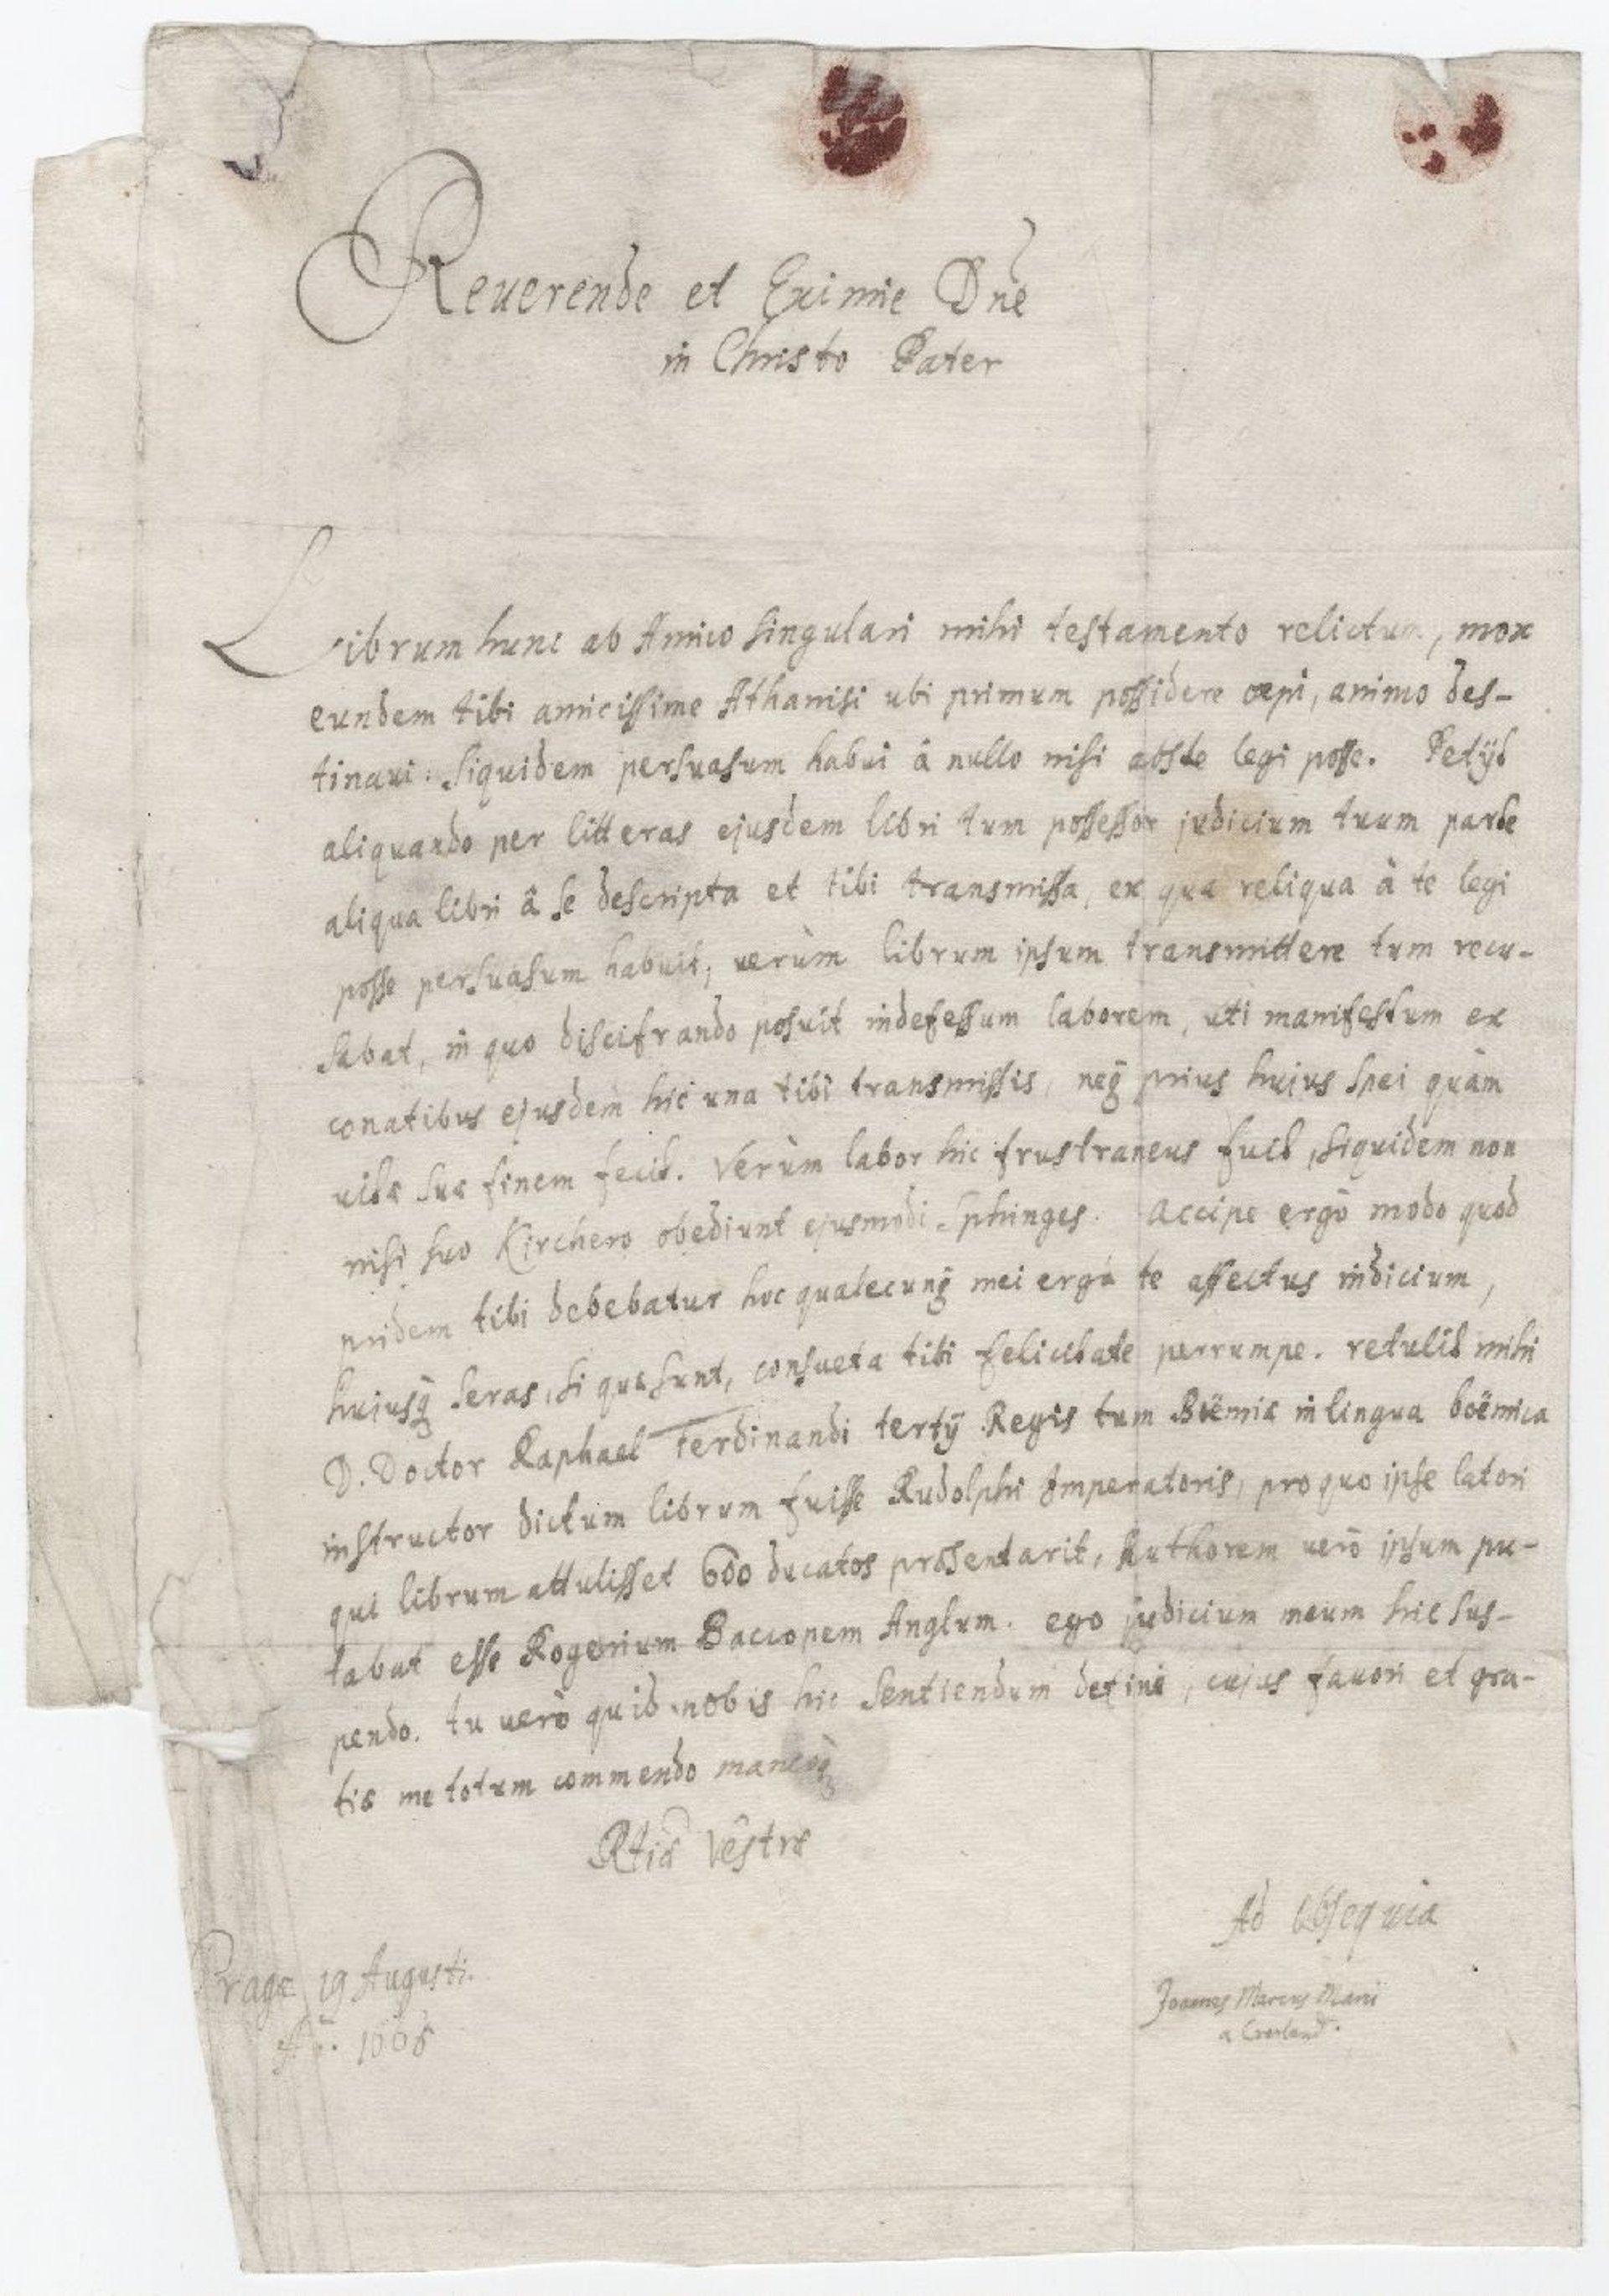 Reuerende et Eximie Dne
in Christo Pater
Librum hunc ab Amico singulari mihi testamento relictum, mox
eundem tibi amicissime Athanisi ubi primum possidere cœpi, animo des-
tinaui: siquidem persuasum habui à nullo nisi abste legi posse. Petijt
aliquando per litteras ejusdem libri tum possessor judicium tuum parte
aliqua libri à se descripta et tibi transmissa, ex qua reliqua à te legi
posse persuasum habuit; uerùm librum ipsum transmittere tum recu-
sabat, in quo discifrando posuit indefessum laborem, uti manifestum ex
conatibus ejusdem hic una tibi transmissis, neq̃ prius hujus spei quàm
uitæ suæ finem fecit. Verùm labor hic frustraneus fuit, siquidem non
nisi suo Kirchero obediunt ejusmodi Sphinges. Accipe ergò modo quod
pridem tibi debebatur hoc qualecunq̃ mei erga te affectus indicium,
hujusq̃ seras, si quæ sunt, consueta tibi felicitate perrumpe. retulit mihi
D. Doctor Raphael Ferdinandi tertij Regis tum Boëmiæ in lingua boëmica
instructor dictum librum fuisse Rudolphi Imperatoris, pro quo ipse latori
qui librum attulisset 600 ducatos præsentarit, Authorem uerò ipsum pu-
tabat esse Rogerium Bacconem Anglum. ego judicium meum hic sus-
pendo. tu uerò quid nobis hic sentiendum defini, cujus fauori et gra-
tiæ me totum commendo maneoq̃
Rtiæ Vestræ
Ad Obsequia
Joannes Marcus Marci
a Cronland.
Pragæ 19 Augusti.
1665